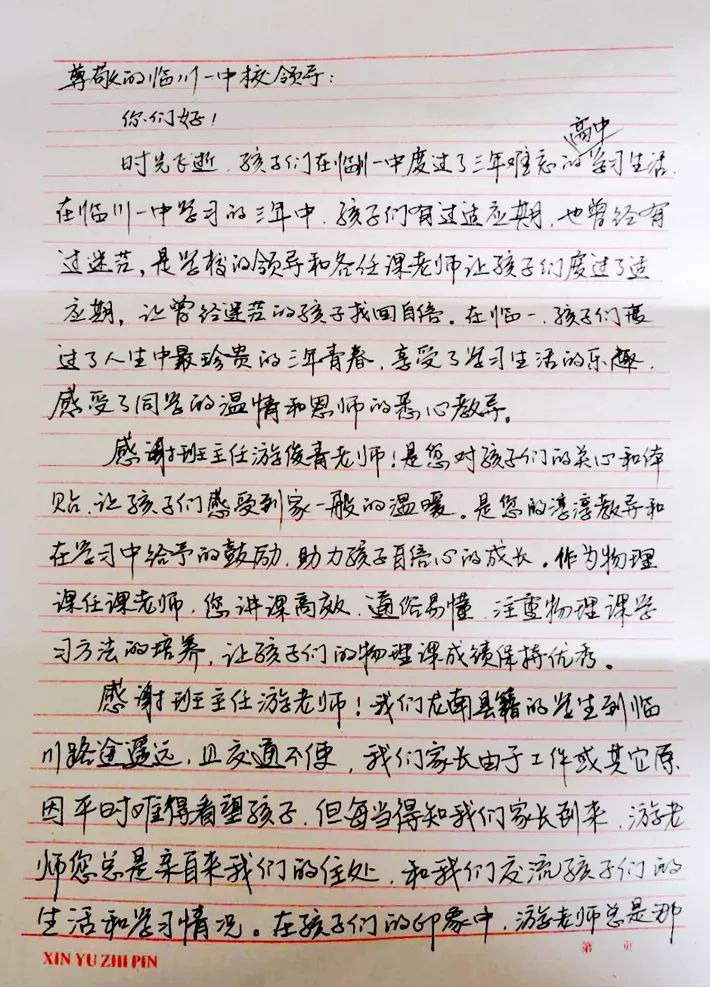 尊敬的临川一中校领导：
你们好！
高中
时光飞逝，孩子们在临川一中度过了三年难忘的学习生活，
在临川一中学习的三年中，孩子们有过适应期，也曾经有
过迷茫，是学校的领导和各任课老师让孩子们度过了适
应期，让曾经迷茫的孩子找回自信。在临一，孩子们度
过了人生中最珍贵的三年青春，享受了学习生活的乐趣，
感受了同学的温情和恩师的悉心教导。
感谢班主任游俊青老师！是您对孩子们的关心和体
贴，让孩子们感受到家一般的温暖。是您的淳淳教导和
在学习中给予的鼓励，助力孩子自信心的成长。作为物理
课任课老师，您讲课高效，通俗易懂，注重物理课学
习方法的培养，让孩子们的物理课成绩保持优秀。
感谢班主任游老师！我们龙南县籍的学生到临
川路途遥远，且交通不便，我们家长由于工作或其它原
因平时难得看望孩子，但每当得知我们家长到来，游老
师您总是亲自来我们的住处，和我们交流孩子们的
生活和学习情况。在孩子们的印象中，游老师总是那
XIN YU ZHI PIN
第 页